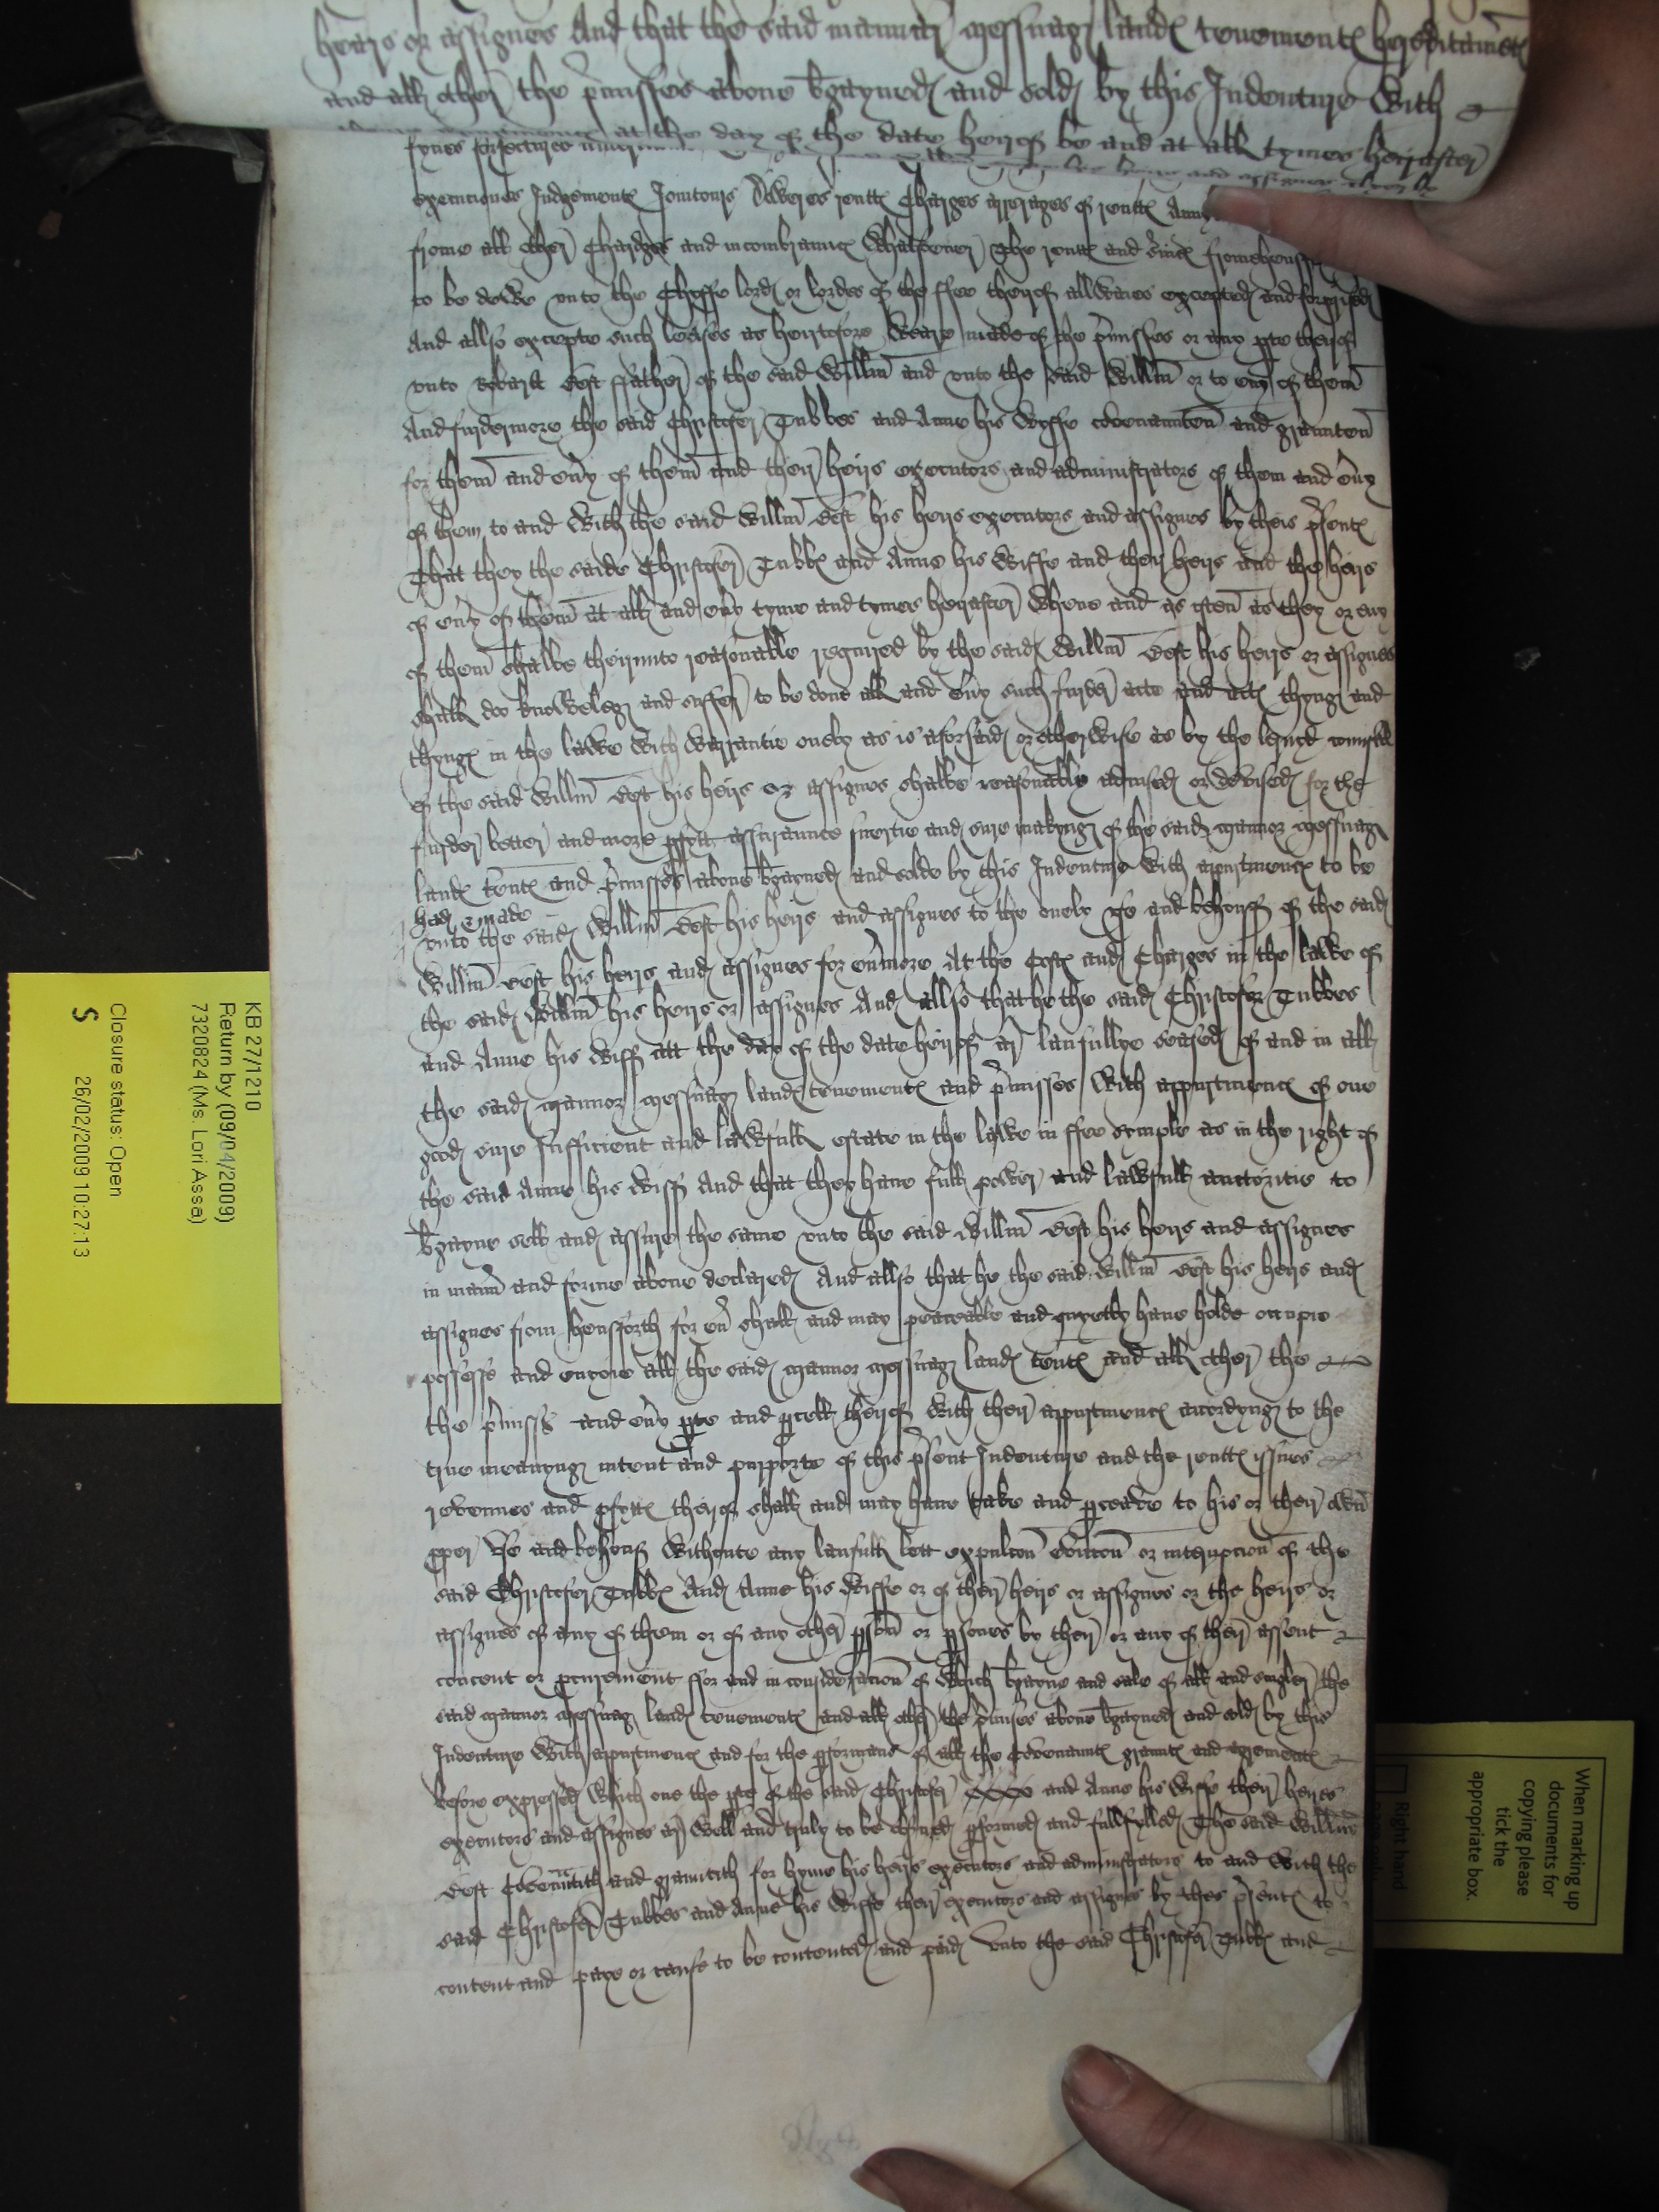 heirs or assignes And that the said mannor messuag landes tenementes hereditamentes
and all other the p'misses above b'gayned and sold by this Indenture with
at the day of the date heirof be and at all tymes heirafter
fynes forfectures
executiones Judgementes Jontours Doweres renttes Charges arrerages of renttes
frome all other Chardges and incombraunces Whatsoever The renttes and s'vices fromehensf
to be dewe unto the Cheffe lord or lordes of the ffee theirof allwaies excepted and forprised
And allso excepte such leases as heirtofore weare made of the p'misses or any p'te theirof
unto father of the said Will'm and unto the said Will'm or to eny of them
And furdermore the said Christofer Tubbes and Anne his Wyffe covenaunten and graunten
for them and ev'y of them and their heirs executors and administrators of them and ev'y
of them to and With the said Will'm Dest his heirs executors and assignes by theis p'sentes
That they the saide Christofer Tubbes and Anne his Wiffe and their heirs and the heirs
of ev'y of them at all and ev'y tyme and tymes heirafter Whene and as often as they or eny
of them shalbe theirunto reasonable required by the said Will'm Dest his heirs or assignes
shall doo knowleg and suffer to be done all and ev'y such furder acte and actes thyng and
thynges in the lawe With Warrantie onely as is aforsaid or otherwise as by the lerned counsell
of the said Will'm Dest his heirs or assignes shalbe reasonablie advised or devised for the
furder better and more p'fytt assuraunce suertie and sure makyng of the said mannor messuag
landes ten'tes and p'misses above b'gayned and solde by this Indenture With appurtenances to be
had & made
unto the said Will'm Dest his heirs and assignes to the onely use and behouff of the said
Will'm Dest his heirs and assignes for ev'more At the Costes and Charges in the lawe of
the said Will'm his heirs or assignes And allso that he the said Christofer Tubbes
and Anne his Wiff att the day of the date heirof ar laufullye seased of and in all
the said mannor messuag landes tenementes and p'misses With appurtenances of one
good sure sufficient and lawfull estate in the lawe in ffee symple as in the right of
the said Anne his Wiff And that they have full power and lawfull auctoritie to
b'gayne sell and assure the same unto the said Will'm Dest his heirs and assignes
in man' and forme above declared And allso that he the said Will'm Dest his heirs and
assignes from hensforth for ev' shall and may peaceable and quyetly have holde occupie
possesse and enyoie all the said mannor messuag landes ten'tes and all other the
the p'misses and ev'y p'te and p'cell theirof With their appurtenances accordyng to the
true meanyng intent and purporte of this p'sent Indenture and the renttes issues
revennes and p'fyttes theirof shall and may have take and p'ceave to his or their own
p'per Use and behouf Withoute any laufull lett expulcon eviccon or interupcion of the
said Christofer Tubbes And Anne his Wiffe or of their heirs or assignes or the heirs or
assignes of any of them or of any other p'son or p'sones by their or any of their assent
concent or p'curement ffor and in consideracion of Which b'gayne and sale of all and singler the
said mannor messuag landes tenementes and all other the p'misses above b'gayned and sold by this
Indenture With appurtenances and for the p'formance of all the Covenauntes grauntes and agrementes
before expressed Which one the p'te of the said Christofer and Anne his Wiffe their heires
executors and assignes ar well and truly to be obs'ved p'formed and fullfylled The said Will'm
Dest Covenntith and grauntith for hyme his heirs executors and administrators to and With the
said Christofer Tubbes and Anne his Wiffe their executors and assignes by thes p'sentes to
content and paye or cause to be contented and paid unto the said Christofer Tubbes and
KB 27/1210
Return by (09/04/2009)
7320824 (Ms. Lori Assa)
Closure status: Open
26/02/2009 10:27:13
S
When marking up
documents for
copying please
tick the
appropriate box.
Right hand